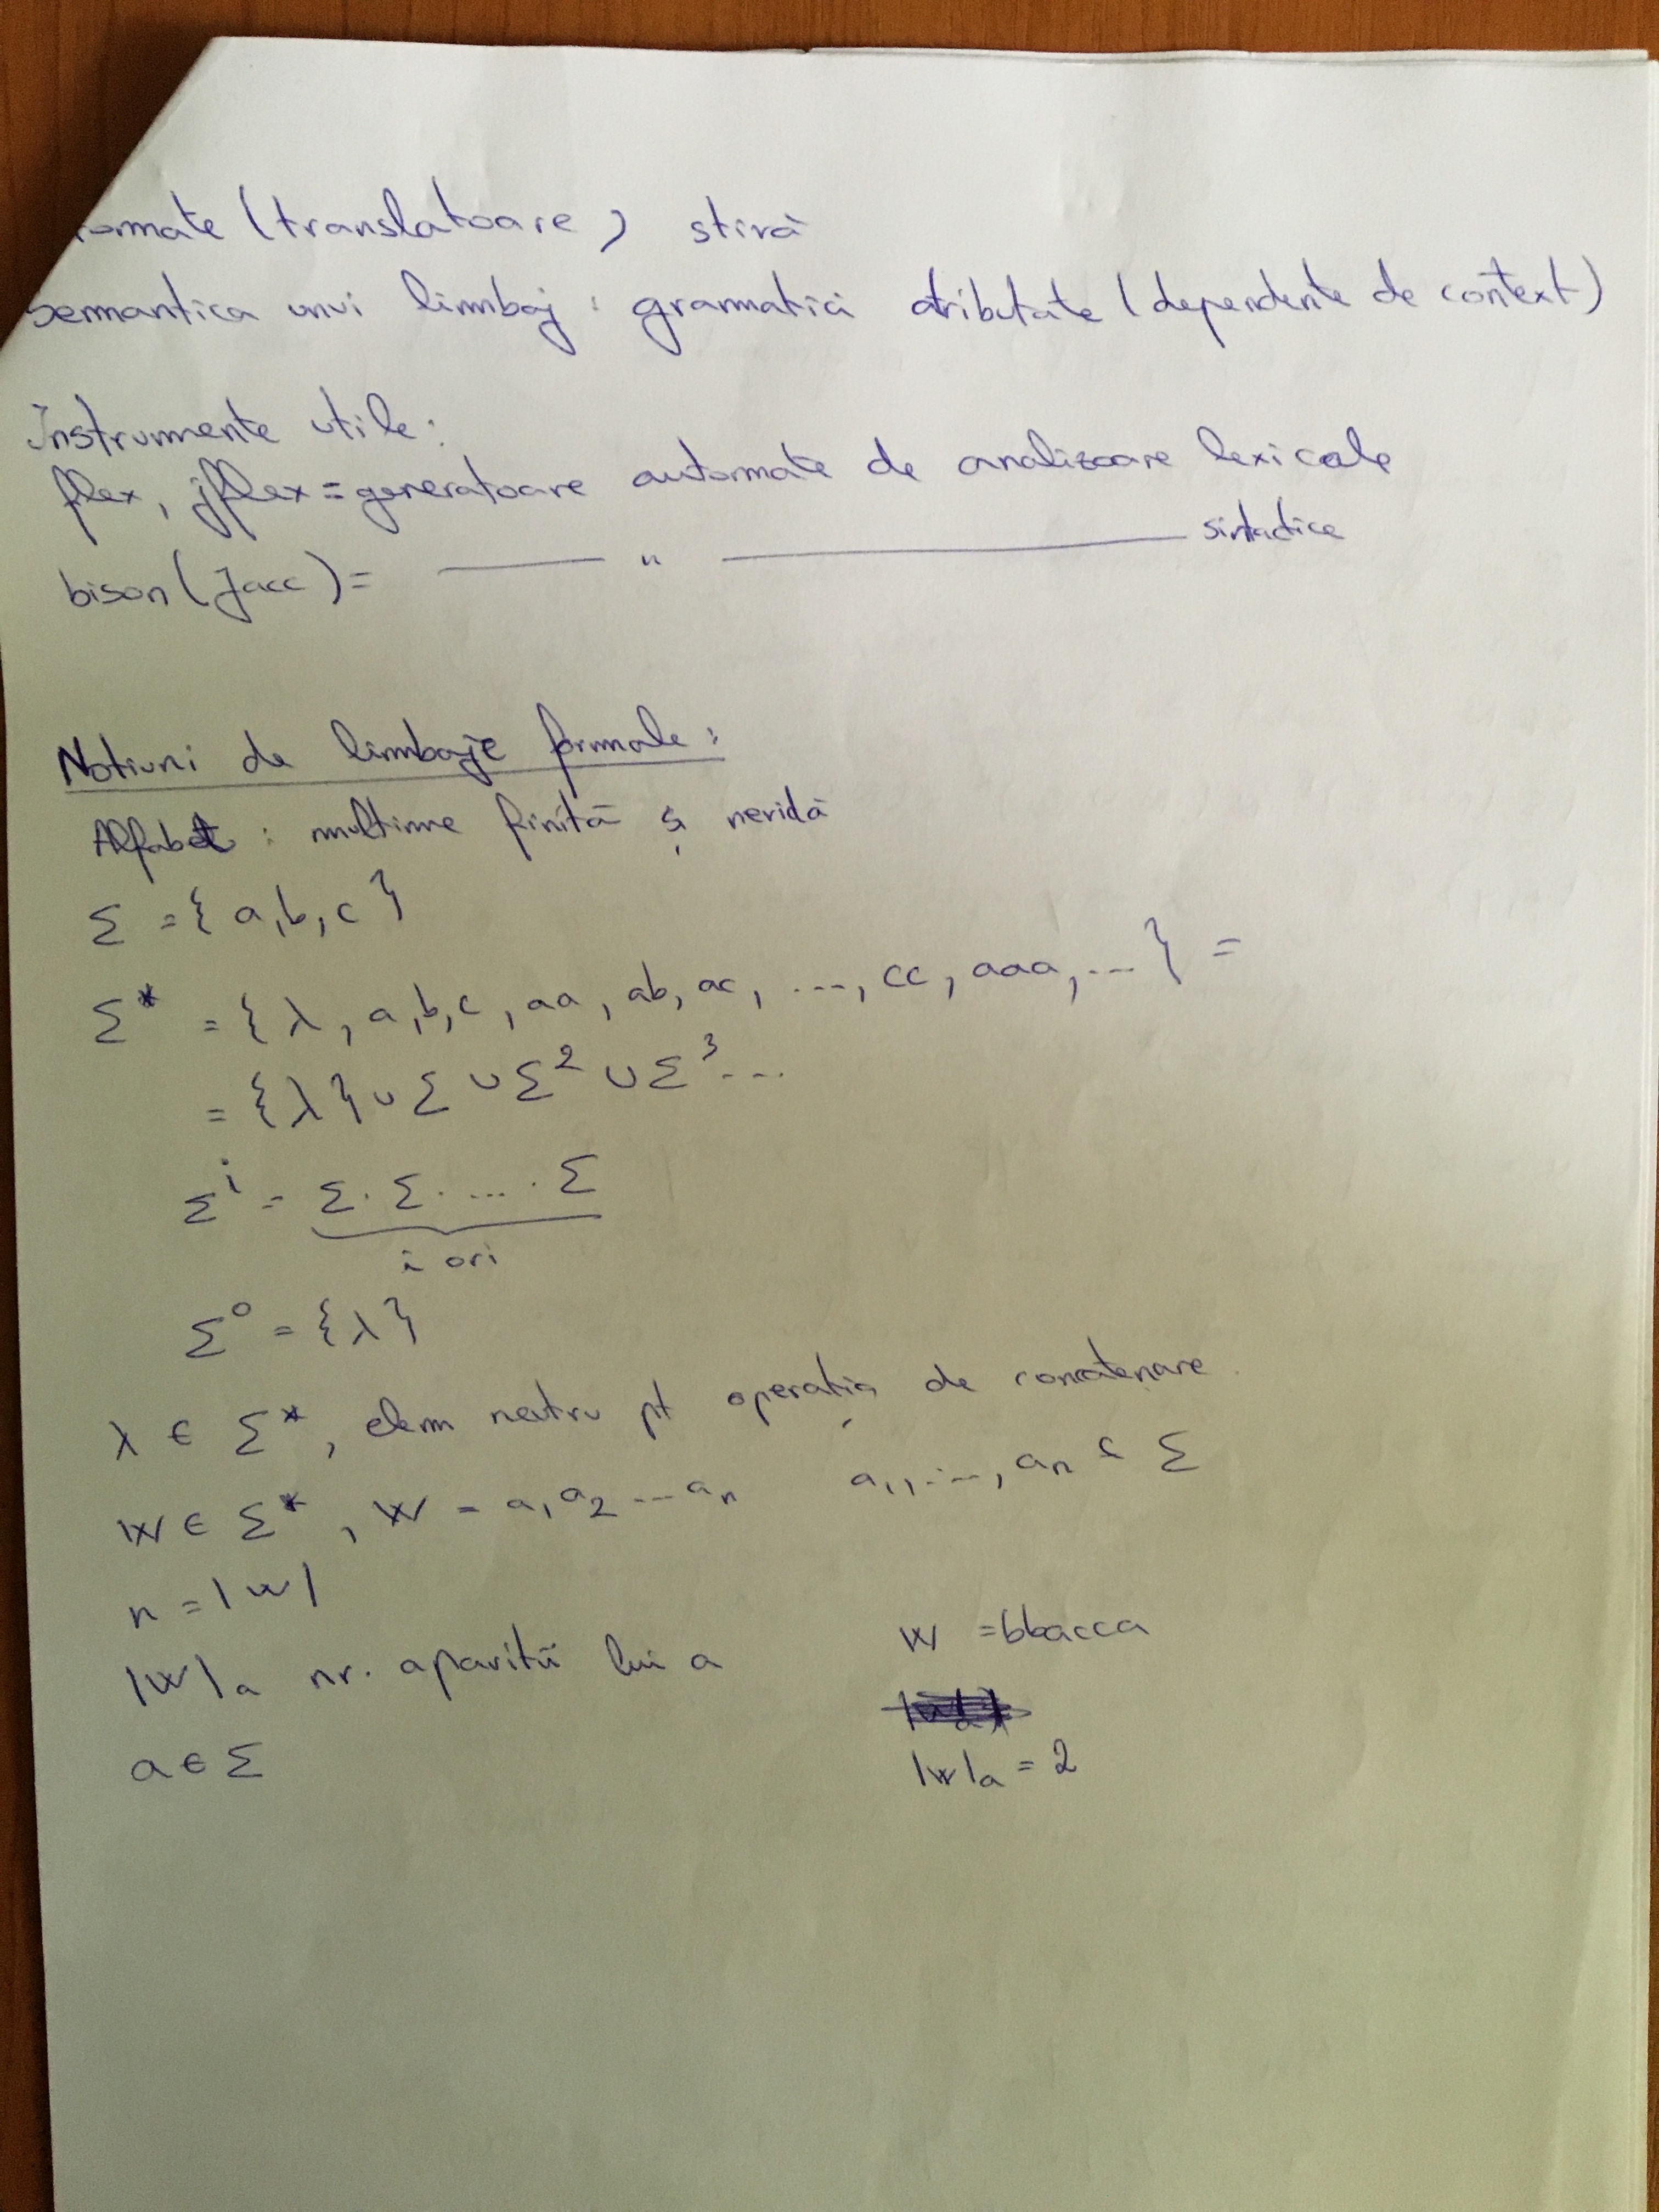 (translatoare) stivă
semantica unui limbaj : gramatici atributate (dependente de context)
Instrumente utile:
flex, jflex = generatoare automate de analizoare lexicale
bison (Jacc) = —— " —— sintactice
Notiuni de limbaje formale:
Alfabet : multime finită și nevidă
Σ = { a, b, c }
Σ* = { λ, a, b, c, aa, ab, ac, ..., cc, aaa, ... } =
= { λ } ∪ Σ ∪ Σ² ∪ Σ³ ...
Σⁱ = Σ · Σ · ... · Σ
i ori
Σ⁰ = { λ }
λ ∈ Σ*, elem neutru pt operația de concatenare.
w ∈ Σ*, w = a₁ a₂ ... aₙ a₁, ..., aₙ ∈ Σ
n = |w|
|w|ₐ nr. aparitii lui a w = bbacca
a ∈ Σ |w|ₐ = 2